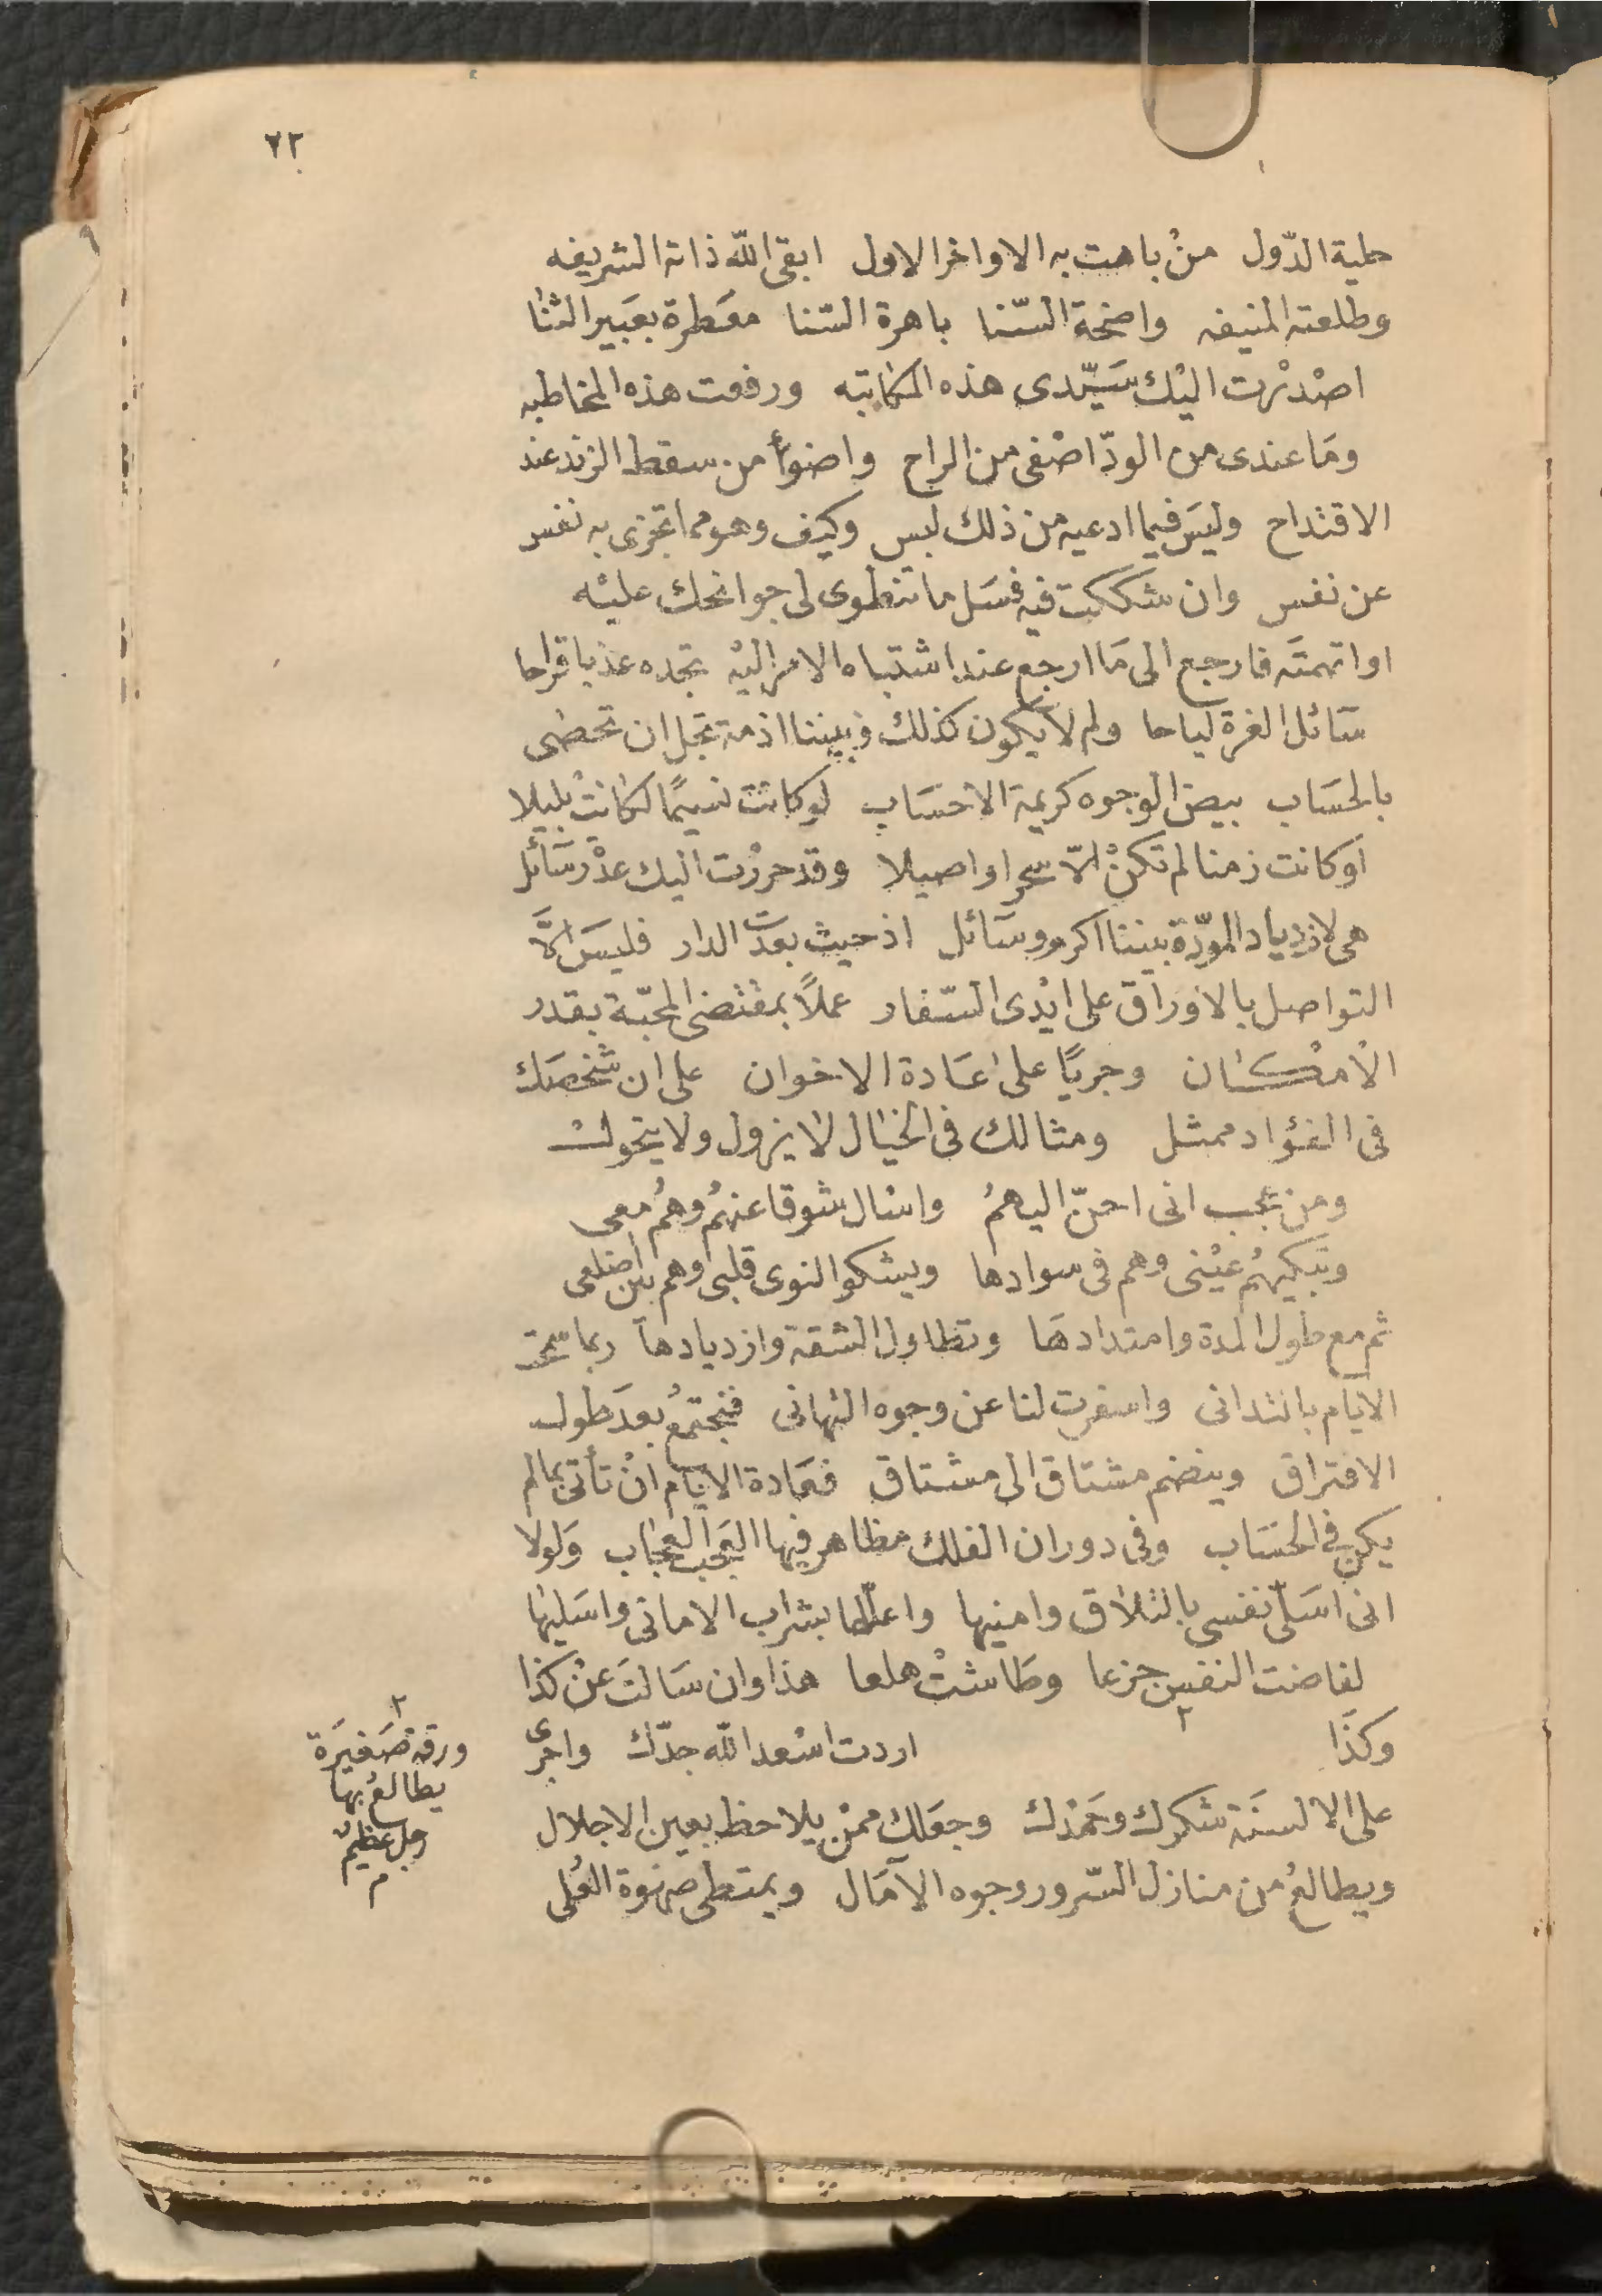 ٧٢
حلية الدّول منْ باهت به الاواخر الاول ابقى الله ذاته الشريفه
وطلعته المنيفه واضحة السّنا باهرة السّنا معَطرة بعَبير الثنا
اصْدرْت اليْك سَيّدى هذه المكاتبه ورفعت هذه المخاطبه
ومَا عندى من الودّ اصْفى من الراح واضوأ من سقط الزند عند
الاقتداح وليَس فيما ادعيه من ذلك لبس وكيف وهو مما تجزى به نفس
عن نفس وان شككت فيه فسَل ما تنطوى لى جوانحك عليْه
او اتهمته فارجع الى مَا ارجع عند اشتباه الامر اليْه تجده عذبا قراحا
سَائل الغرة لياحا ولم لا يكون كذلك وبيننا اذمة تجل ان تحصى
بالحسَاب بيض الوجوه كريمة الاحسَاب لو كانت نسيمًا لكانتْ بليلا
او كانت زمنا لم تكنْ الّا سحرا او اصيلا وقد حررت اليك عدْ رسَائل
هى لازدياد المودّة بيننا اكرم وسَائل اذ حيث بعدَت الدار فليسَ الَّا
التواصل بالاوراق على ايْدى السّفار عملًا بمقتضى المحبّة بقدر
الامْكان وجريًا على عَادة الاخوان على ان شخصَك
فى الفؤاد ممثل ومثالك فى الخيال لا يزول ولا يتحول
ومن عجب انى احنّ اليهمُ واسْال شوقا عنهمُ وهُم معى
وتبكيهُم عيْنى وهم فى سوادها ويشكو النوى قلبى وهم بين اضلعى
ثم مع طول المدة وامتدادهَا وتطاول الشقة وازديادها ربما سمحت
الايام بالتدانى واسفرت لنا عن وجوه التهانى فنجتمعُ بعدَ طول
الافتراق وينضم مشتاق الى مشتاق فعَادة الايّام انْ تأتى بما لم
يكن فى الحسَاب وفى دوران الفلك مظاهر فيها العَجب العجاب وَلولا
انى اسَلّى نفسى بالتلاق وامنيها واعللها بشراب الامانى واسَليها
لفاضت النفس جزعا وطَاشتْ هلعا هذا وان سَالتَ عنْ كذا
وكذَا ٢ اردت اسْعد الله جدّك واجرى
على الالسنَة شكرك وحَمْدك وجعَلك ممنْ يلاحظ بعين الاجلال
ويطالعُ من منازل السّرور وجوه الآمَال ويمتطى صهوة العُلى
٢
ورقة صَغيَرة
يطالعُ بها
رجل عظيمٌ
م